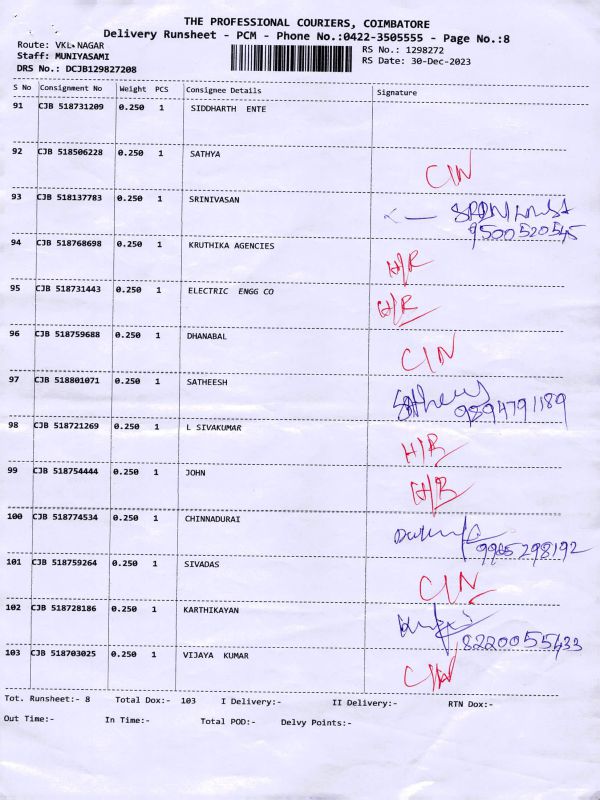 THE PROFESSIONAL COURIERS, COIMBATORE
Delivery Runsheet - PCM - Phone No.:0422-3505555 - Page No.:8
Route: VKL NAGAR
RS No.: 1298272
Staff: MUNIYASAMI
RS Date: 30-Dec-2023
DRS No.: DCJB129827208
S No Consignment No Weight PCS Consignee Details Signature
91 CJB 518731209 0.250 1 SIDDHARTH ENTE
92 CJB 518506228 0.250 1 SATHYA CIN
93 CJB 518137783 0.250 1 SRINIVASAN
9500520545
94 CJB 518768698 0.250 1 KRUTHIKA AGENCIES H/R
95 CJB 518731443 0.250 1 ELECTRIC ENGG CO H/R
96 CJB 518759688 0.250 1 DHANABAL CIN
97 CJB 518801071 0.250 1 SATHEESH
9894791189
98 CJB 518721269 0.250 1 L SIVAKUMAR H/R
99 CJB 518754444 0.250 1 JOHN H/R
100 CJB 518774534 0.250 1 CHINNADURAI
9965298192
101 CJB 518759264 0.250 1 SIVADAS CIN
102 CJB 518728186 0.250 1 KARTHIKAYAN
8220055433
103 CJB 518703025 0.250 1 VIJAYA KUMAR CIN
Tot. Runsheet:- 8 Total Dox:- 103 I Delivery:- II Delivery:- RTN Dox:-
Out Time:- In Time:- Total POD:- Delvy Points:-